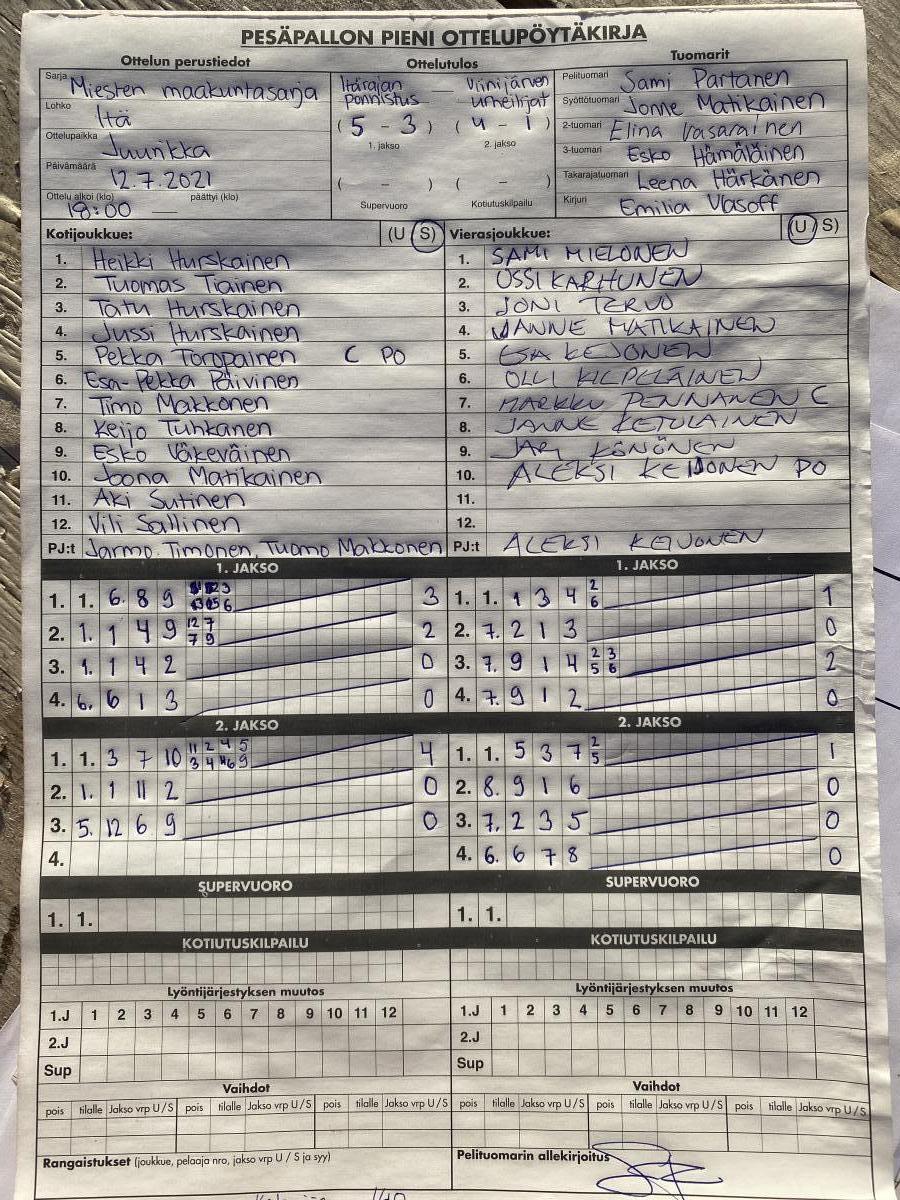 PESÄPALLON PIENI OTTELUPÖYTÄKIRJA
Ottelun perustiedot
Ottelutulos
Tuomarit
Sarja Miesten maakuntasarja
Lohko Itä
Ottelupaikka Juurikka
Päivämäärä 12.7.2021
Ottelu alkoi (klo) 18:00 päättyi (klo)
Itärajan Ponnistus — Viinijärven Urheilijat
(5 - 3) (4 - 1)
1. jakso 2. jakso
( - ) ( - )
Supervuoro Kotiutuskilpailu
Pelituomari Sami Partanen
Syöttötuomari Jonne Matikainen
2-tuomari Elina Vasarainen
3-tuomari Esko Hämäläinen
Takarajatuomari Leena Härkänen
Kirjuri Emilia Vlasoff
Kotijoukkue: (U S)
1. Heikki Hurskainen
2. Tuomas Tiainen
3. Tatu Hurskainen
4. Jussi Hurskainen
5. Pekka Toropainen C PO
6. Esa-Pekka Päivinen
7. Timo Makkonen
8. Keijo Tuhkanen
9. Esko Väkeväinen
10. Joona Matikainen
11. Aki Sutinen
12. Vili Sallinen
PJ:t Jarmo Timonen, Tuomo Makkonen
Vierasjoukkue: (U S)
1. SAMI MIELONEN
2. OSSI KARHUNEN
3. JONI TERVO
4. JANNE MATIKAINEN
5. ESA KEJONEN
6. OLLI KILPELÄINEN
7. MARKKU PENNANEN C
8. JANNE KETULAINEN
9. JARI KÖNÖNEN
10. ALEKSI KEIJONEN PO
11.
12.
PJ:t ALEKSI KEIJONEN
1. JAKSO
1. 1. 6 8 9 3
2. 1. 1 4 9 12 7 7 9 2
3. 1. 1 4 2 0
4. 6. 6 1 3 0
1. JAKSO
1. 1. 1 3 4 2 6 1
2. 7. 2 1 3 0
3. 7. 9 1 4 2 3 5 6 2
4. 7. 9 1 2 0
2. JAKSO
1. 1. 3 7 10 11 2 4 5 3 4 6 9 4
2. 1. 1 11 2 0
3. 5. 12 6 9 0
4.
2. JAKSO
1. 1. 5 3 7 2 5 1
2. 8. 9 1 6 0
3. 7. 2 3 5 0
4. 6. 6 7 8 0
SUPERVUORO
1. 1.
SUPERVUORO
1. 1.
KOTIUTUSKILPAILU
KOTIUTUSKILPAILU
Lyöntijärjestyksen muutos
1.J 1 2 3 4 5 6 7 8 9 10 11 12
2.J
Sup
Lyöntijärjestyksen muutos
1.J 1 2 3 4 5 6 7 8 9 10 11 12
2.J
Sup
Vaihdot
pois tilalle Jakso vrp U/S pois tilalle Jakso vrp U/S pois tilalle Jakso vrp U/S
Vaihdot
pois tilalle Jakso vrp U/S pois tilalle Jakso vrp U/S pois tilalle Jakso vrp U/S
Rangaistukset (joukkue, pelaaja nro, jakso vrp U / S ja syy)
Pelituomarin allekirjoitus